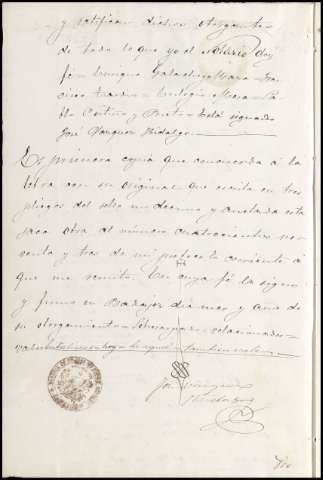 y ratifican dichos otorgantes
de todo lo que yo el Notario doy
fé = Enrique
= Eulogio Mora = Pa-
blo = Está signado
José Vazquez Hidalgo.
Es primera copia que concuerda á la
letra con su original que escrita en tres
pliegos del sello undecimo y anotada esta
saca obra al número cuatrocientos no-
venta y tres de mi protocolo corriente á
que me remito. En cuya fé la signo
y firmo en Badajoz dia mes y año de
su otorgamiento =
José Vazquez
Hidalgo